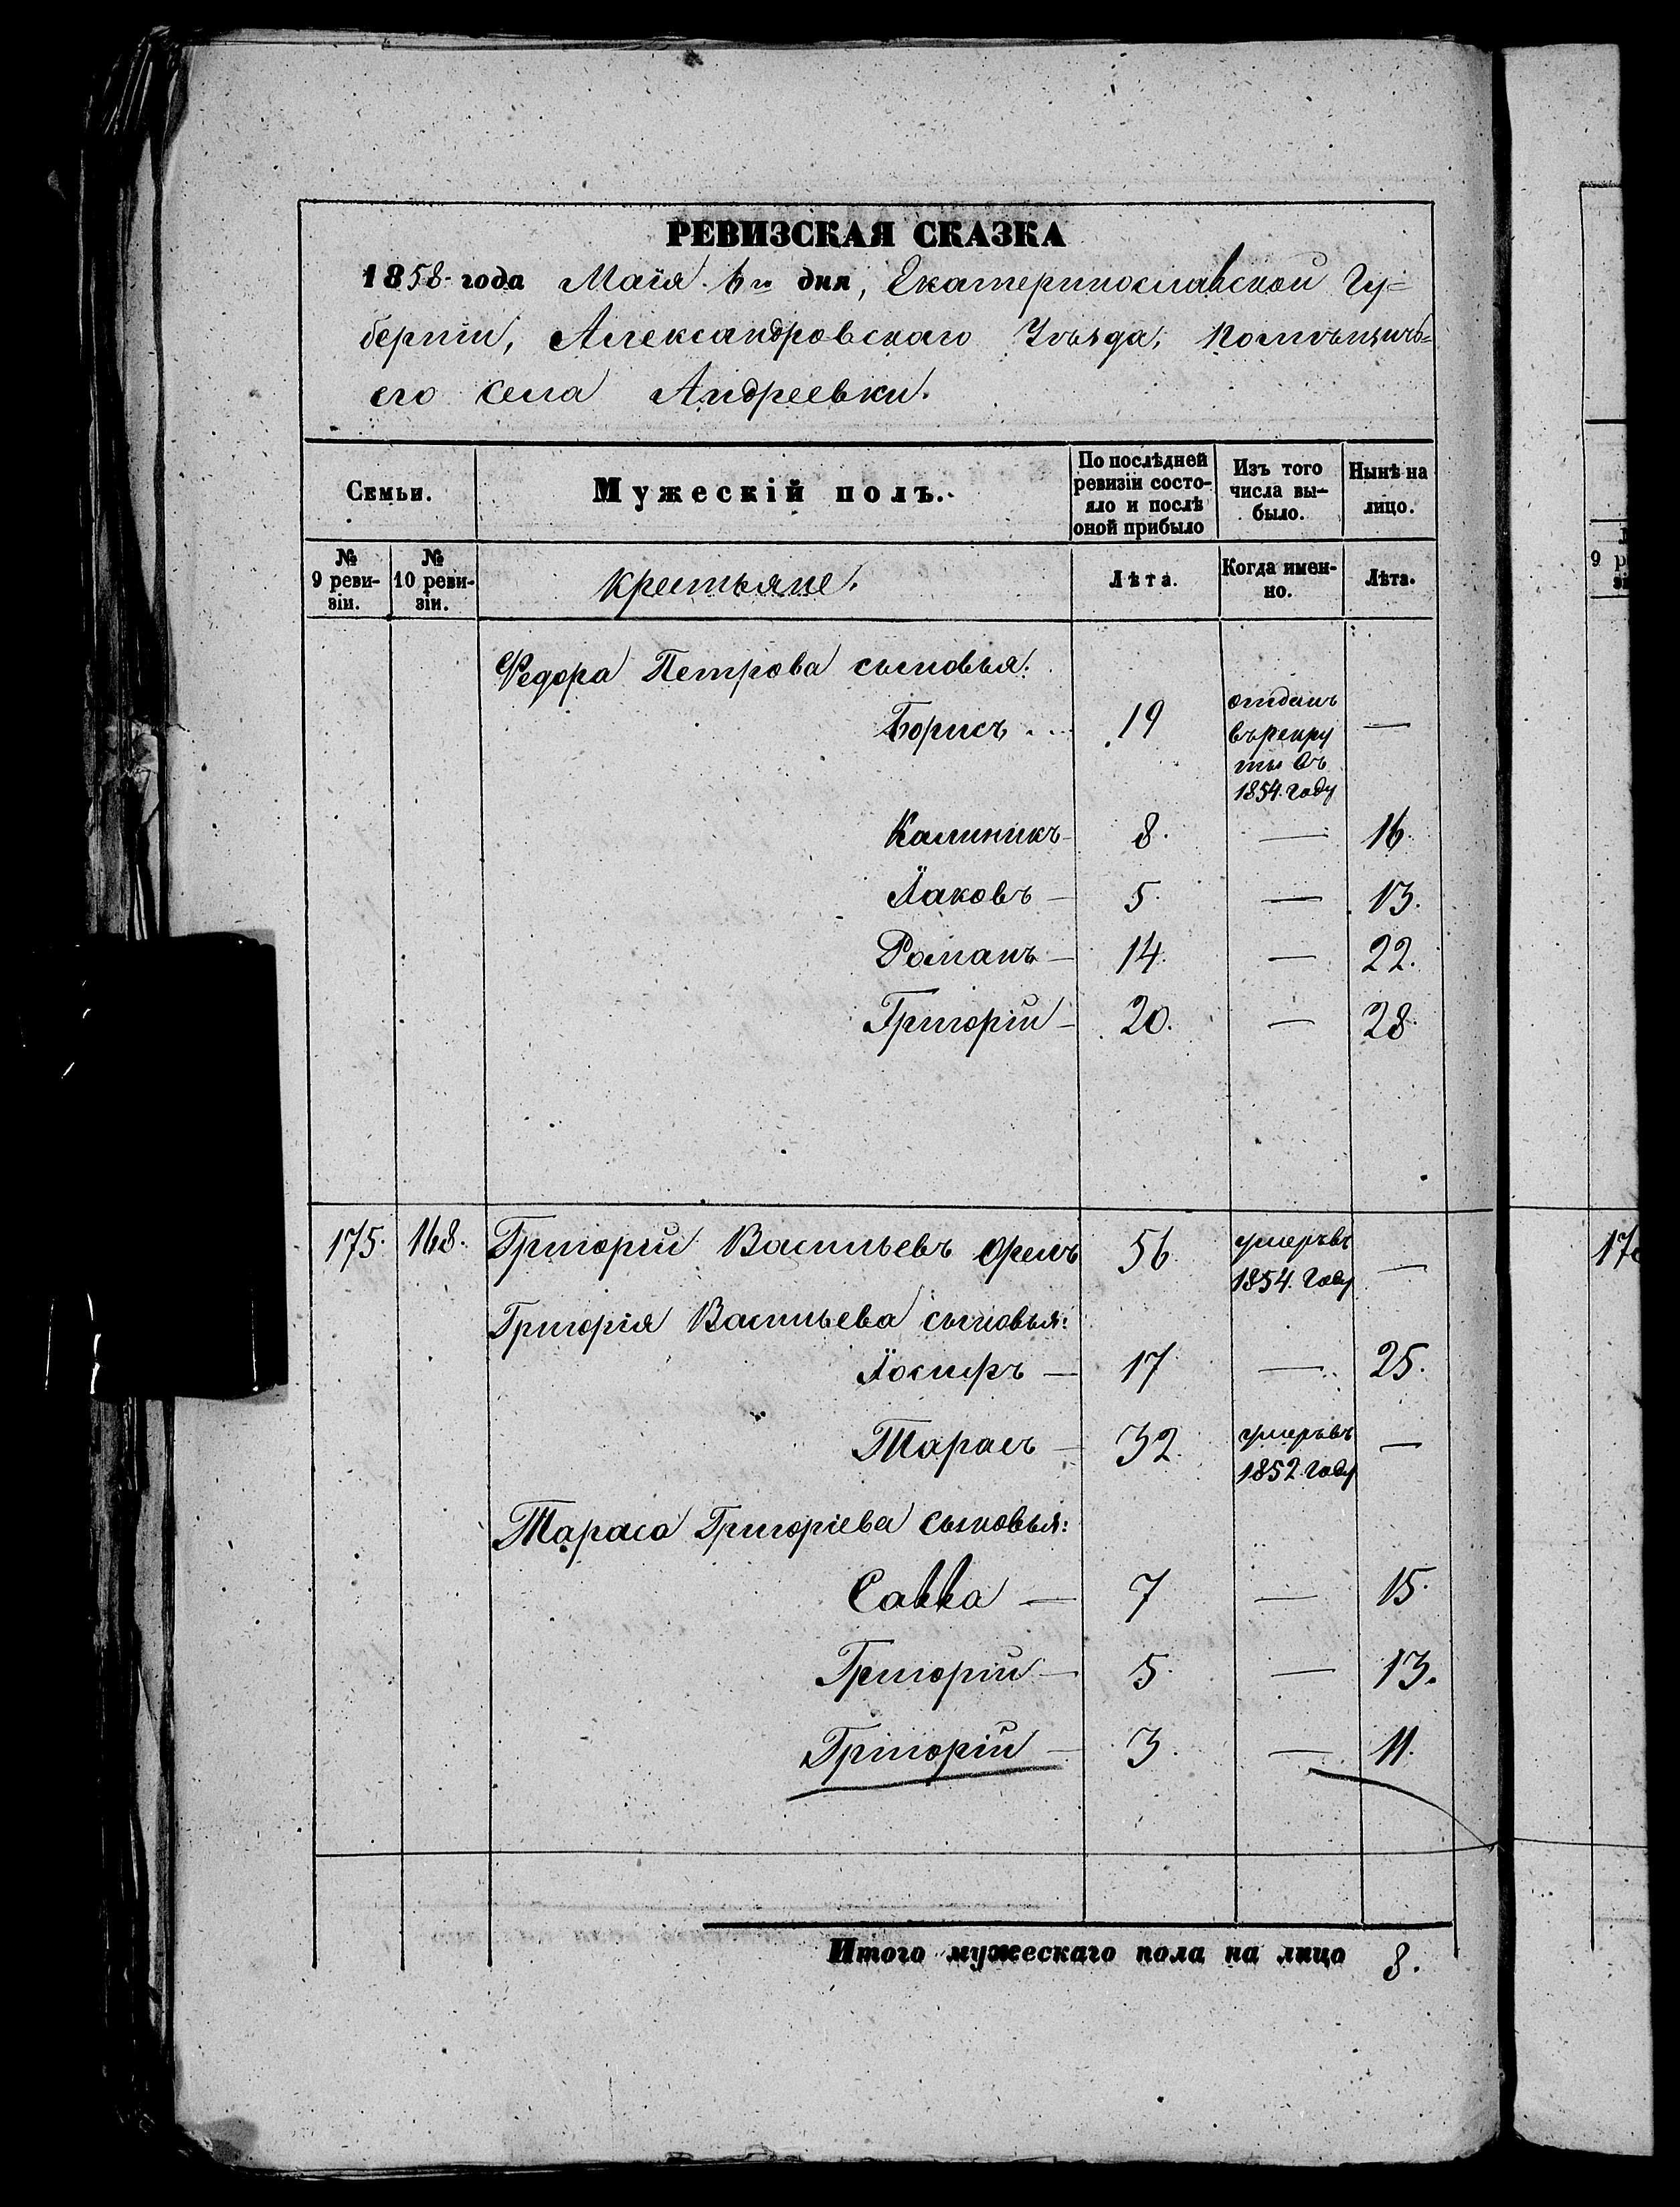 РЕВИЗСКАЯ СКАЗКА
1858 года Маія 6го дня, Екатеринославской Гу=
берніи, Александровскаго Уѣзда, Помѣщичь=
его села Андреевки.
Семьи. Мужескій полъ. По послѣдней ревизіи состояло и послѣ оной прибыло Изъ того числа выбыло. Нынѣ на лицо.
№ 9 ревизіи. № 10 ревизіи. Крестьяне. Лѣта. Когда именно. Лѣта.
Федора Петрова сыновья:
Борисъ 19 отданъ въ рекруты въ 1854. году —
Калиникъ — 8. — 16.
Іаковъ — 5. — 13.
Романъ — 14. — 22.
Григорій — 20. — 28.
175. 168. Григорій Васильевъ Орелъ 56. умеръ въ 1854. году —
Григорія Васильева сыновья:
Іосифъ — 17 — 25.
Тарасъ — 32. умеръ въ 1852. году —
Тараса Григоріева сыновья:
Савва — 7 — 15.
Григорій — 5. — 13.
Григорій — 3. — 11.
Итого мужескаго пола на лицо 8.